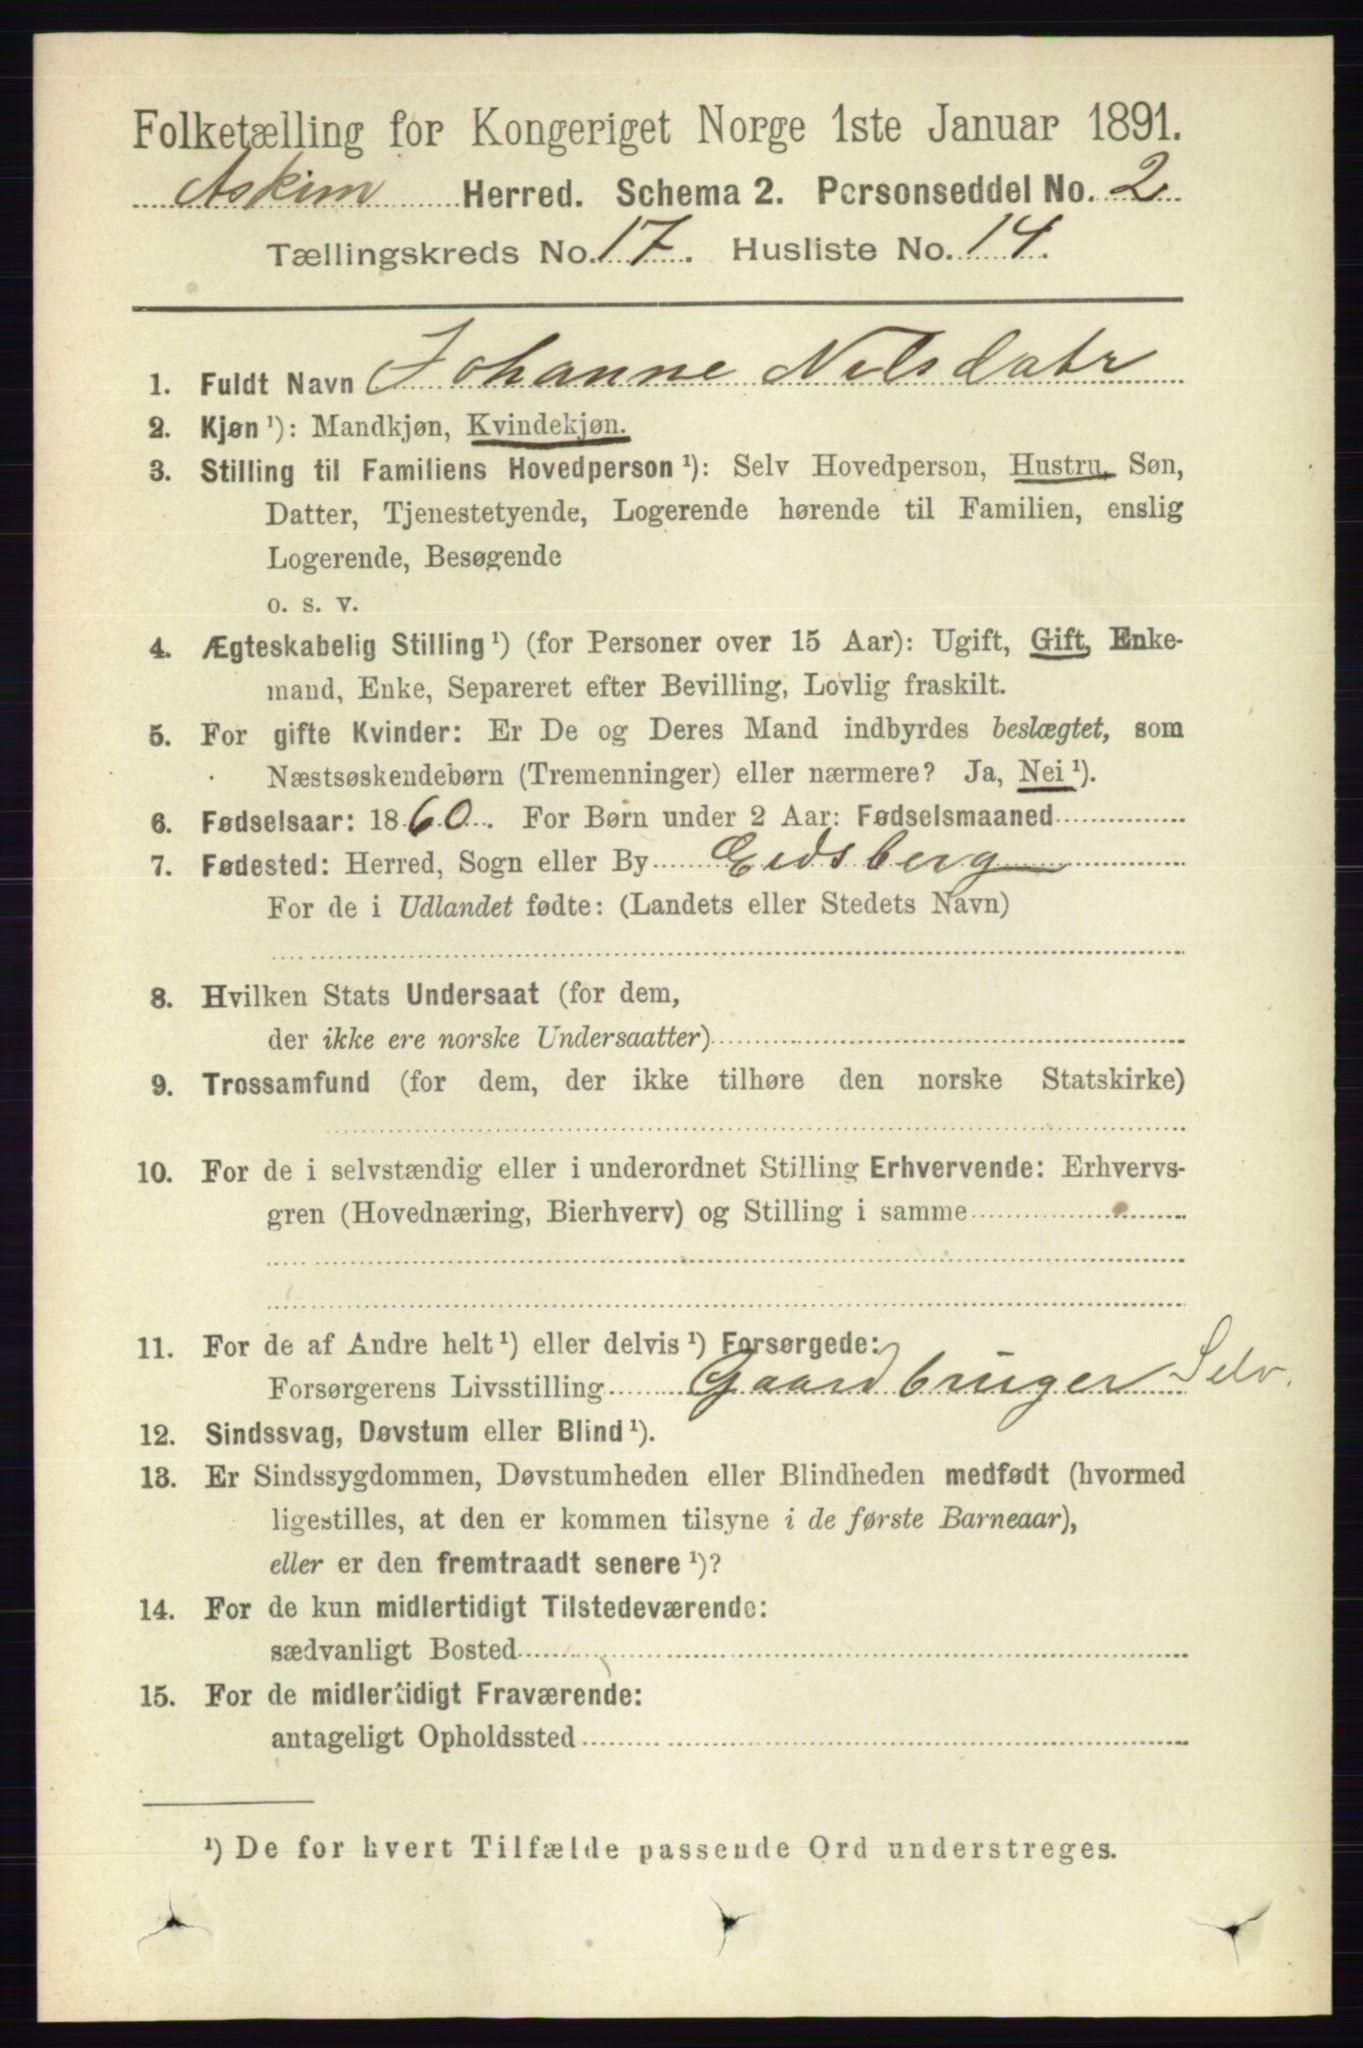 Folketælling for Kongeriget Norge 1ste Januar 1891.
Askim Herred. Schema 2. Personseddel No. 2
Tællingskreds No. 17. Husliste No. 14.
1. Fuldt Navn Johanne Nilsdatr
2. Kjøn ¹): Mandkjøn, Kvindekjøn.
3. Stilling til Familiens Hovedperson ¹): Selv Hovedperson, Hustru, Søn,
Datter, Tjenestetyende, Logerende hørende til Familien, enslig
Logerende, Besøgende
o. s. v.
4. Ægteskabelig Stilling ¹) (for Personer over 15 Aar): Ugift, Gift, Enke-
mand, Enke, Separeret efter Bevilling, Lovlig fraskilt.
5. For gifte Kvinder: Er De og Deres Mand indbyrdes beslægtet, som
Næstsøskendebørn (Tremenninger) eller nærmere? Ja, Nei ¹).
6. Fødselsaar: 1860. For Børn under 2 Aar: Fødselsmaaned
7. Fødested: Herred, Sogn eller By Eidsberg
For de i Udlandet fødte: (Landets eller Stedets Navn)
8. Hvilken Stats Undersaat (for dem,
der ikke ere norske Undersaatter)
9. Trossamfund (for dem, der ikke tilhøre den norske Statskirke)
10. For de i selvstændig eller i underordnet Stilling Erhvervende: Erhvervs-
gren (Hovednæring, Bierhverv) og Stilling i samme
11. For de af Andre helt ¹) eller delvis ¹) Forsørgede:
Forsørgerens Livsstilling Gaardbruger Selv.
12. Sindssvag, Døvstum eller Blind ¹).
13. Er Sindssygdommen, Døvstumheden eller Blindheden medfødt (hvormed
ligestilles, at den er kommen tilsyne i de første Barneaar),
eller er den fremtraadt senere ¹)?
14. For de kun midlertidigt Tilstedeværende:
sædvanligt Bosted
15. For de midlertidigt Fraværende:
antageligt Opholdssted
¹) De for hvert Tilfælde passende Ord understreges.